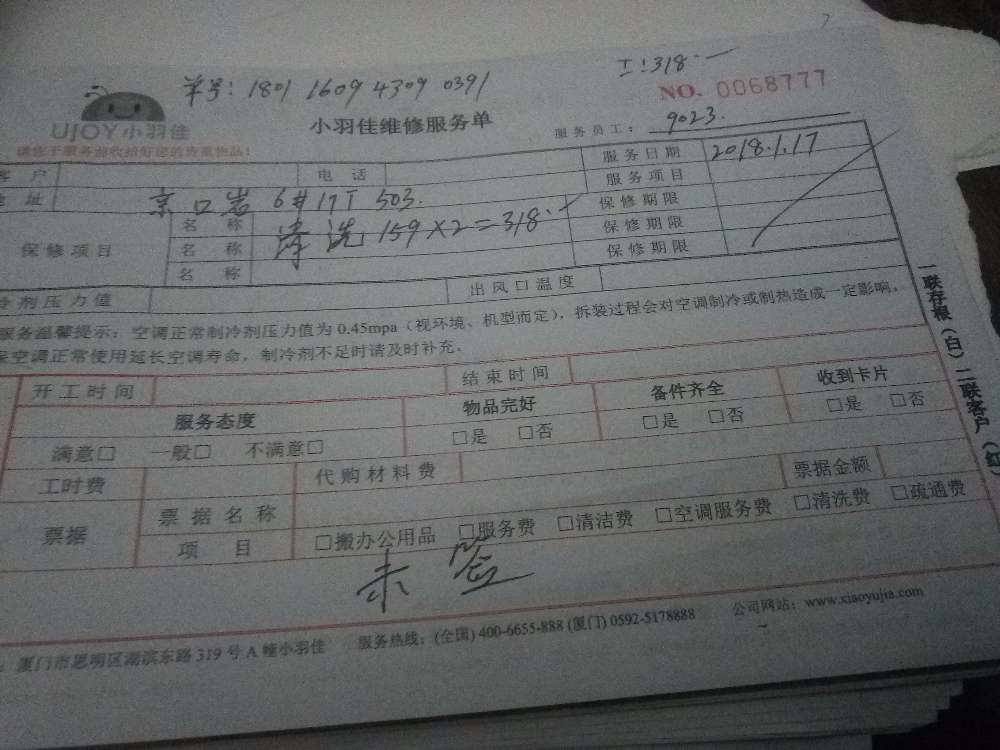 单号: 1801 1609 4309 0391
工:318.一
NO. 0068777
UJOY小羽佳
小羽佳维修服务单
服务员工: 9023.
请在于服务前收拾好您的贵重物品!
客 户
电 话
服务日期 2018.1.17
地 址
京口岩 6#17T 503.
服务项目
保修项目
名 称 清洗 159×2=318.一
保修期限
名 称
保修期限
名 称
保修期限
冷剂压力值
出风口温度
服务温馨提示: 空调正常制冷剂压力值为 0.45mpa (视环境、机型而定), 拆装过程会对空调制冷或制热造成一定影响,
保空调正常使用延长空调寿命, 制冷剂不足时请及时补充。
开工时间
结束时间
服务态度
物品完好
备件齐全
收到卡片
满意□ 一般□ 不满意□
□是 □否
□是 □否
□是 □否
工时费
代购材料费
票据金额
票据
票据名称
项 目
□搬办公用品 □服务费 □清洁费 □空调服务费 □清洗费 □疏通费
未签
: 厦门市思明区湖滨东路 319 号 A 幢小羽佳
服务热线: (全国) 400-6655-888 (厦门) 0592-5178888
公司网站: www.xiaoyujia.com
一联存根(白)二联客户(红